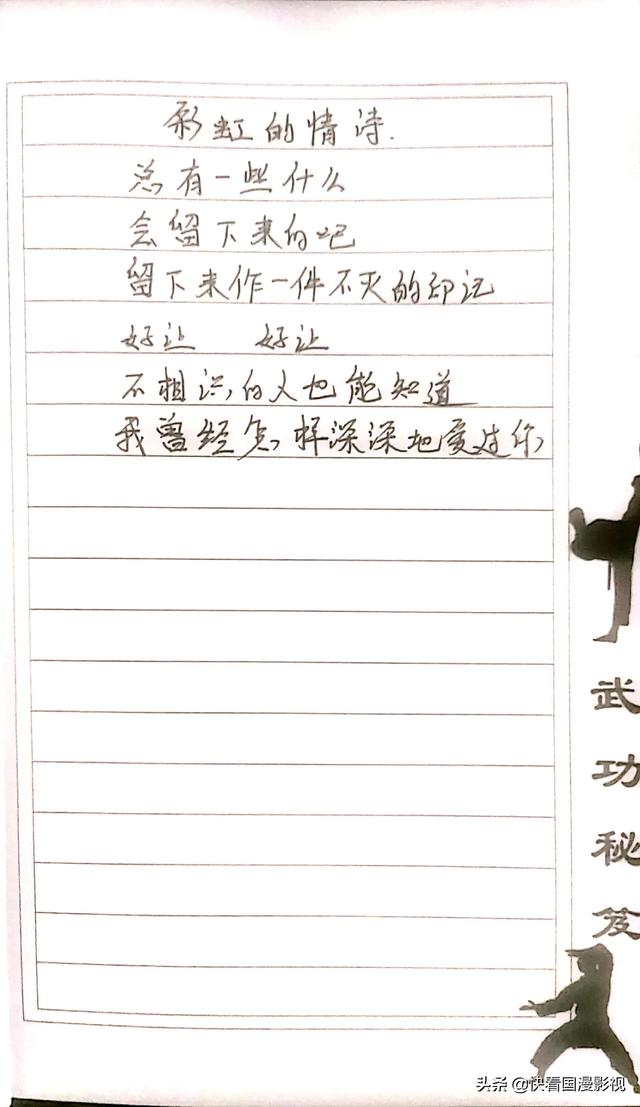 彩虹的情诗.
总有一些什么
会留下来的吧
留下来作一件不灭的印记
好让 好让
不相识的人也能知道
我曾经怎样深深地爱过你
武功秘笈
头条@快看国漫影视